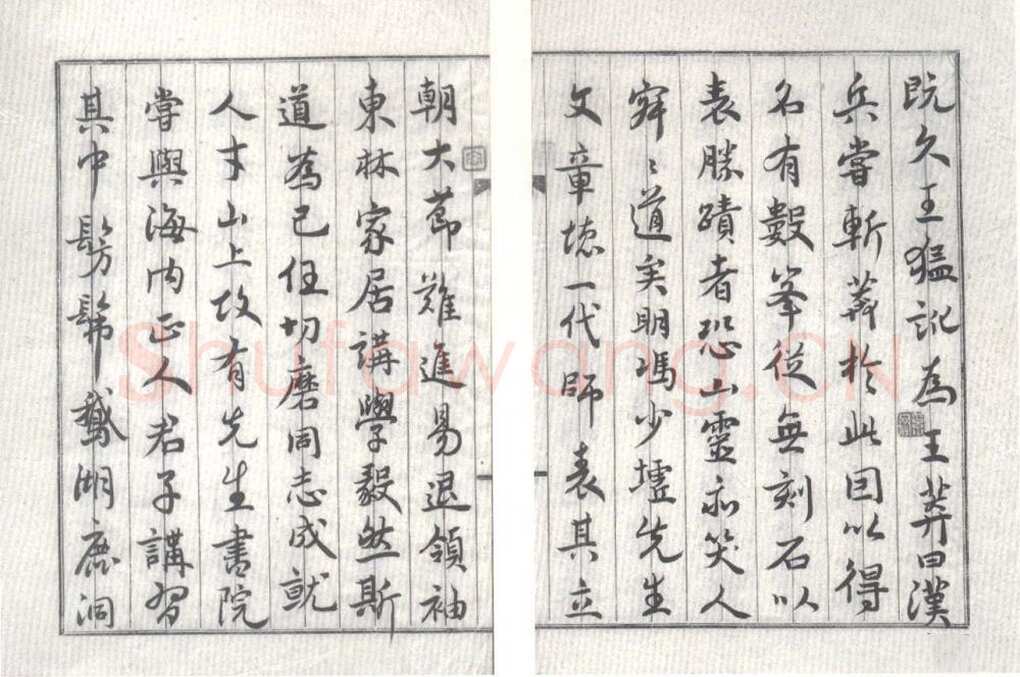 既久王猛訛為王莽曰漢
兵嘗斬莽於此因以得
名有數峯從無刻石以
表勝蹟者恐山靈亦笑人
道矣明馮少墟先生
文章徳一代師表其立
朝大節難進易退領袖
東林家居講學毅然斯
道為己任切磨同志成就
人才山上故有先生書院
嘗與海内正人君子講習
其中髣髴鵞湖鹿洞
Shufawang.CN